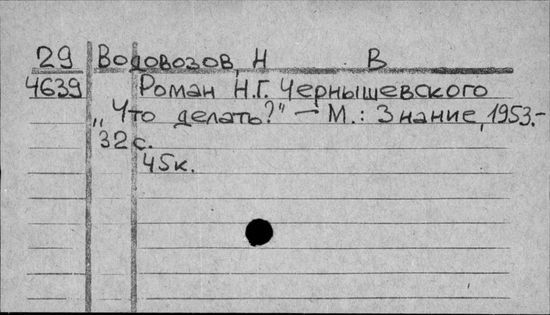 29 Водовозов, Н В
4639 Роман Н.Г. Чернышевского
„Что делать?" — М.: Знание, 1953.-
32 с.
45к.